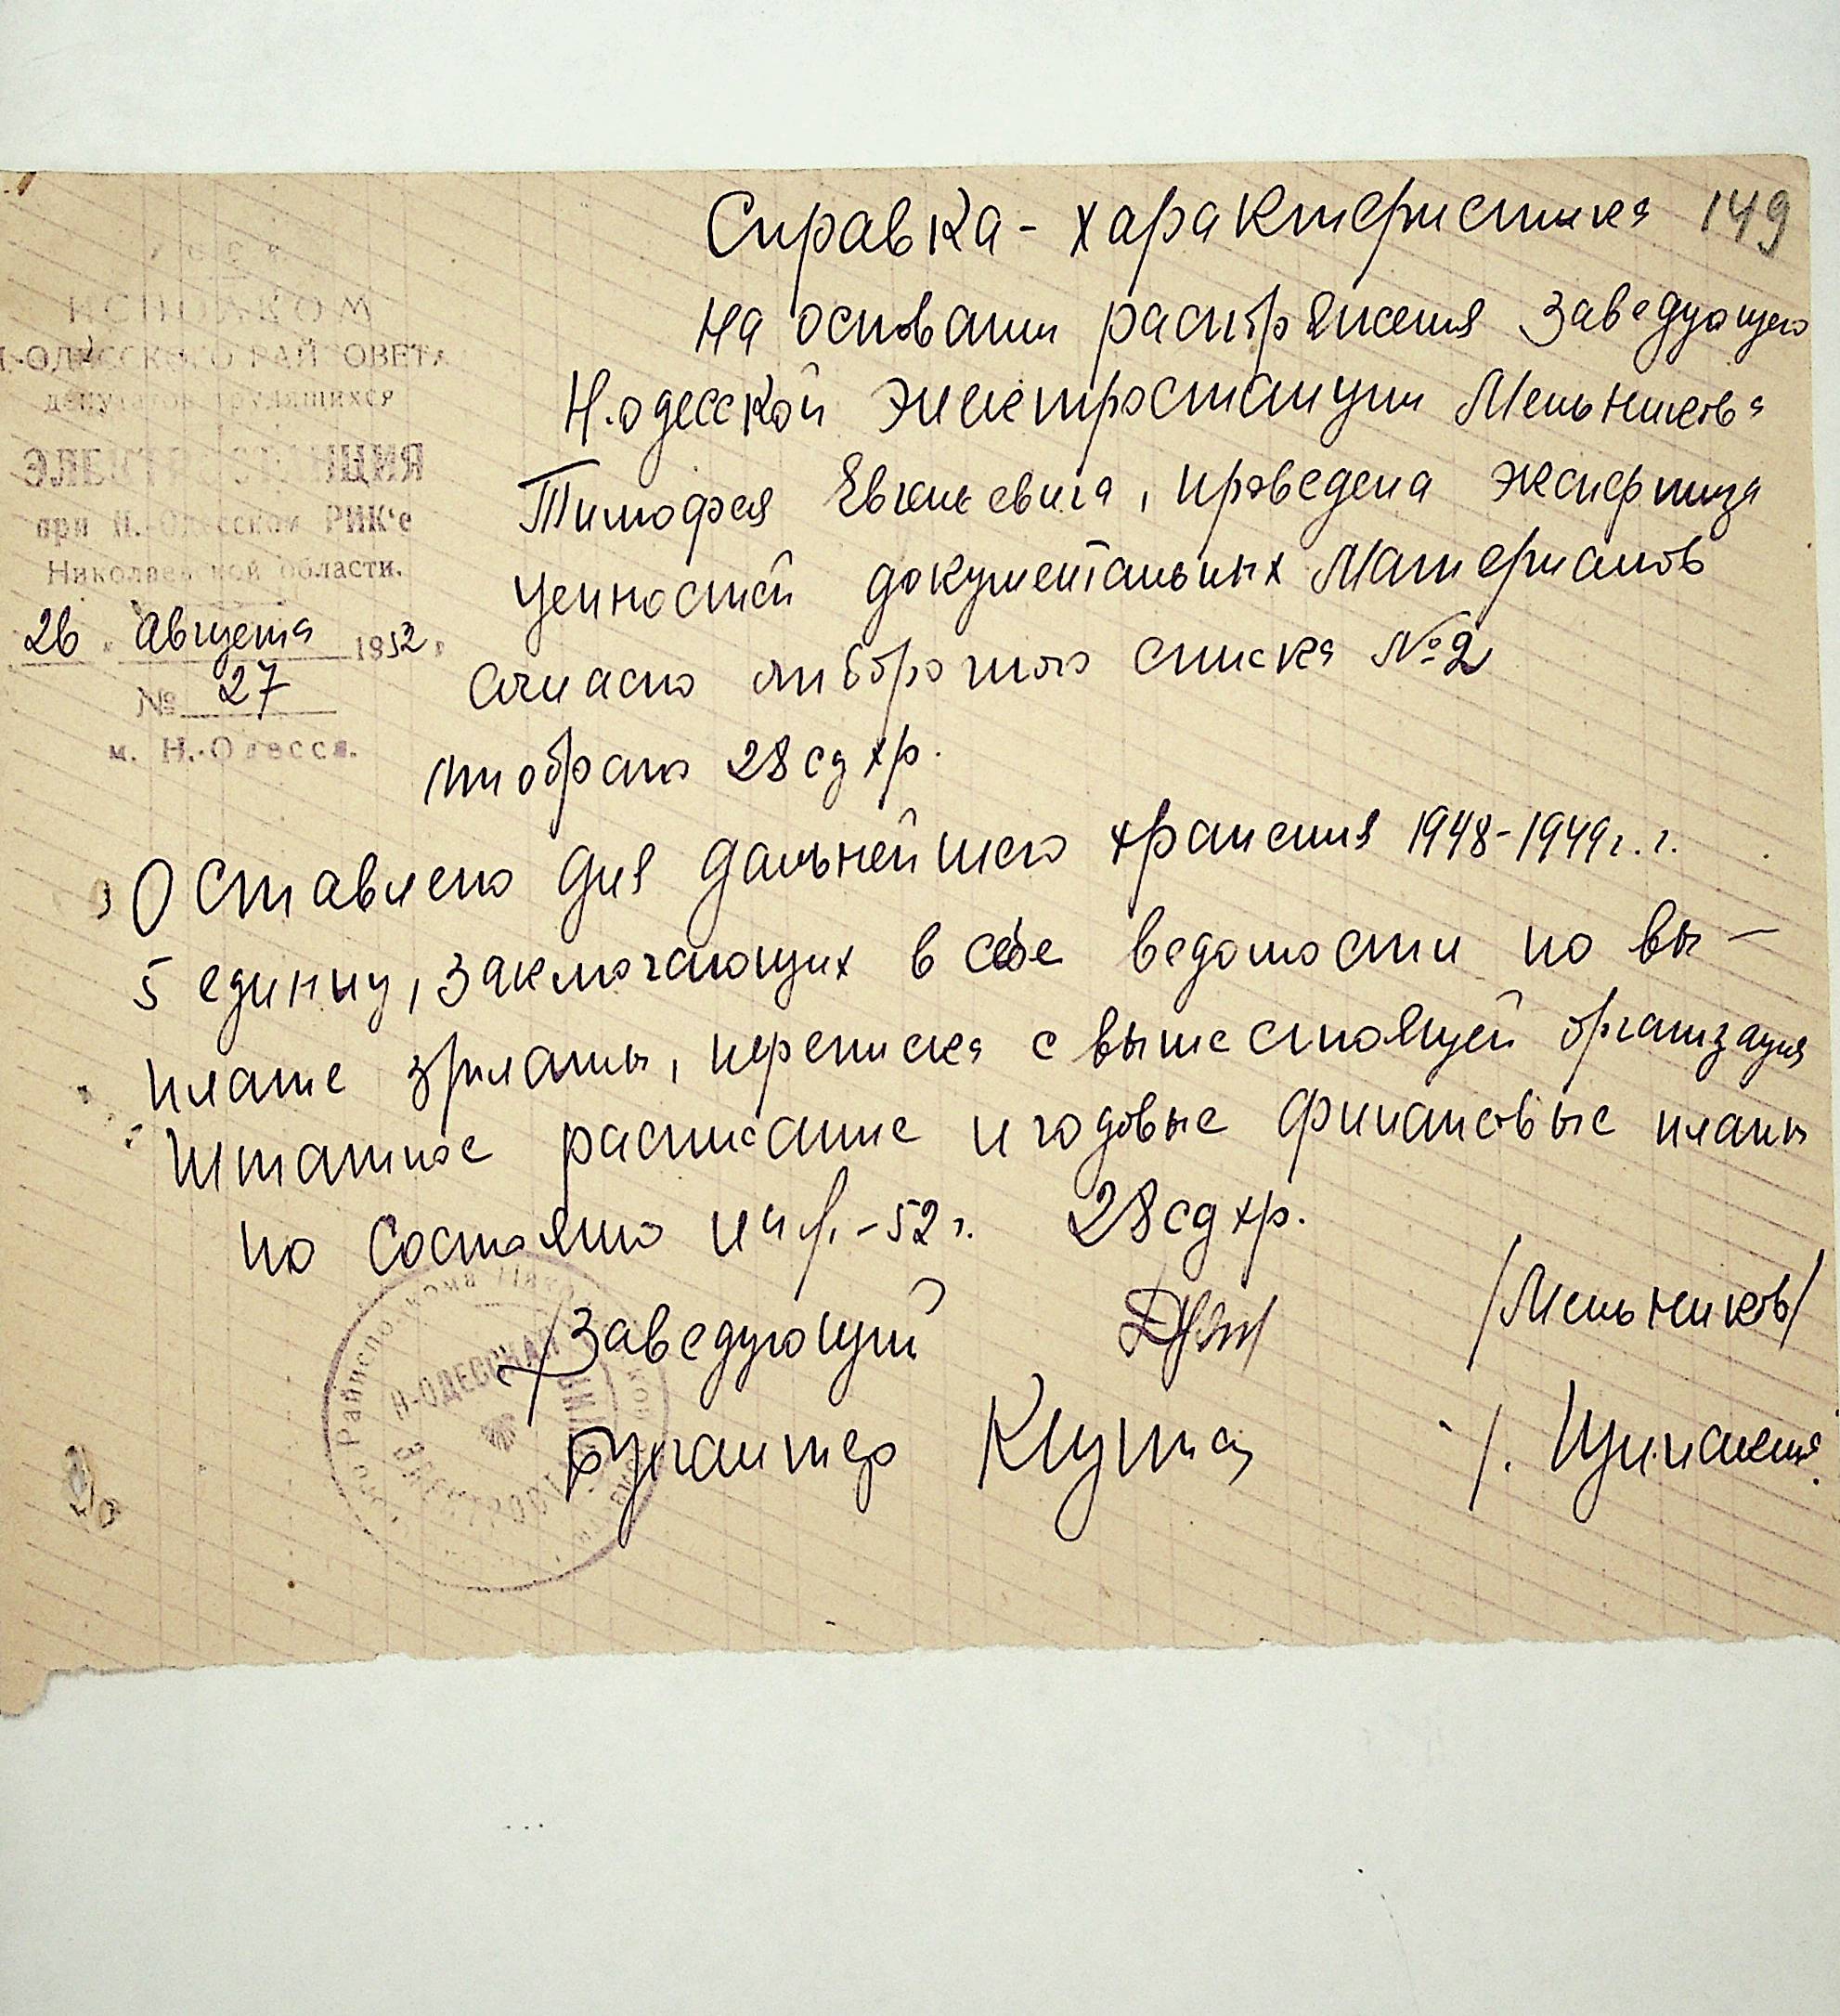 149
Справка - характеристика
УССР
ИСПОЛКОМ
Н.-ОДЕССКОГО РАЙСОВЕТА
депутатов трудящихся
ЭЛЕКТРОСТАНЦИЯ
при Н.-Одесском РИК'е
Николаевской области.
26 " августа 1952 г.
№ 27
м. Н.-Одесса.
На основании распоряжения заведующего
Н.одесской электростанции Мельникова
Тимофея, проведена экспертиза
ценностей документальных материалов
Согласно отборочного списка №2
отобрано 28 ед хр.
Оставлено для дальнейшего хранения 1948-1949 г.г.
5 единиц, заключающих в себе ведомости по вы-
плате зрплаты, переписка с вышестоящей организация
Штатное расписание и годовые финансовые планы
по состоянию на -52 г. 28 ед хр.
Заведующий /Мельников/
Бухгалтер
Н-ОДЕССКАЯ